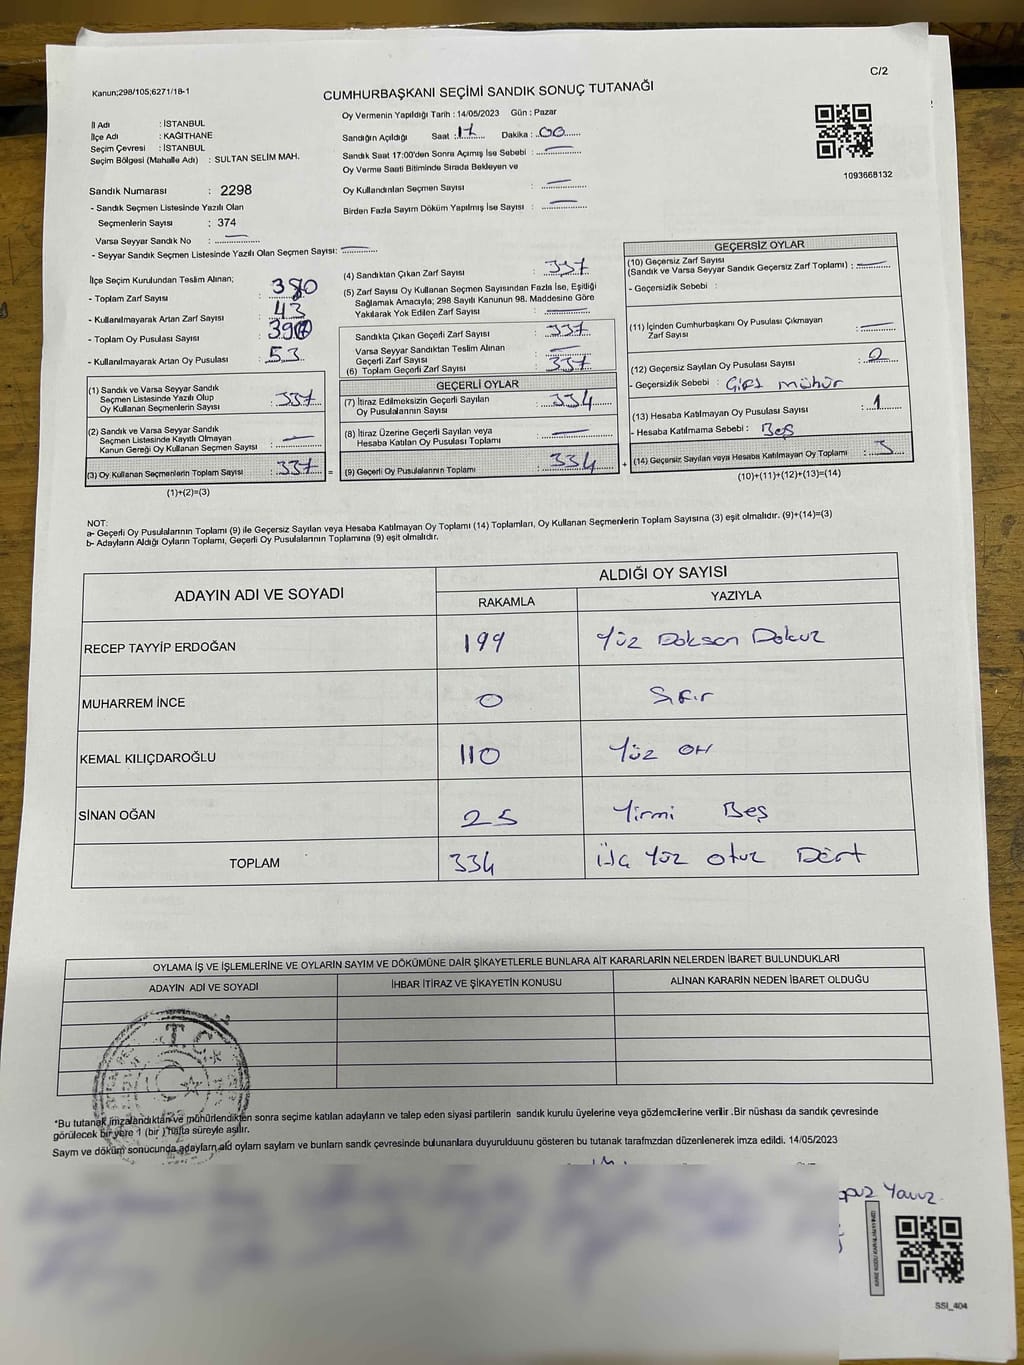 C/2
Kanun;298/105;6271/18-1
CUMHURBAŞKANI SEÇİMİ SANDIK SONUÇ TUTANAĞI
Oy Vermenin Yapıldığı Tarih : 14/05/2023 Gün : Pazar
İl Adı : İSTANBUL
İlçe Adı : KAĞITHANE
Seçim Çevresi : İSTANBUL
Seçim Bölgesi (Mahalle Adı) : SULTAN SELİM MAH.
Sandığın Açıldığı Saat : 17 Dakika : 00
Sandık Saat 17:00'den Sonra Açımış İse Sebebi :
Oy Verme Saati Bitiminde Sırada Bekleyen ve
Oy Kullandırılan Seçmen Sayısı :
Birden Fazla Sayım Döküm Yapılmış İse Sayısı :
1093668132
Sandık Numarası : 2298
- Sandık Seçmen Listesinde Yazılı Olan
Seçmenlerin Sayısı : 374
Varsa Seyyar Sandık No :
- Seyyar Sandık Seçmen Listesinde Yazılı Olan Seçmen Sayısı:
İlçe Seçim Kurulundan Teslim Alınan;
- Toplam Zarf Sayısı : 380
- Kullanılmayarak Artan Zarf Sayısı : 43
- Toplam Oy Pusulası Sayısı : 390
- Kullanılmayarak Artan Oy Pusulası : 53
(1) Sandık ve Varsa Seyyar Sandık
Seçmen Listesinde Yazılı Olup
Oy Kullanan Seçmenlerin Sayısı : 337
(2) Sandık ve Varsa Seyyar Sandık
Seçmen Listesinde Kayıtlı Olmayan
Kanun Gereği Oy Kullanan Seçmen Sayısı :
(3) Oy Kullanan Seçmenlerin Toplam Sayısı : 337 =
(1)+(2)=(3)
(4) Sandıktan Çıkan Zarf Sayısı : 337
(5) Zarf Sayısı Oy Kullanan Seçmen Sayısından Fazla İse, Eşitliği
Sağlamak Amacıyla; 298 Sayılı Kanunun 98. Maddesine Göre
Yakılarak Yok Edilen Zarf Sayısı :
Sandıkta Çıkan Geçerli Zarf Sayısı : 337
Varsa Seyyar Sandıktan Teslim Alınan
Geçerli Zarf Sayısı :
(6) Toplam Geçerli Zarf Sayısı : 337
GEÇERLİ OYLAR
(7) İtiraz Edilmeksizin Geçerli Sayılan
Oy Pusulalarının Sayısı : 334
(8) İtiraz Üzerine Geçerli Sayılan veya
Hesaba Katılan Oy Pusulası Toplamı :
(9) Geçerli Oy Pusulalarının Toplamı : 334 +
GEÇERSİZ OYLAR
(10) Geçersiz Zarf Sayısı
(Sandık ve Varsa Seyyar Sandık Geçersiz Zarf Toplamı) :
- Geçersizlik Sebebi :
(11) İçinden Cumhurbaşkanı Oy Pusulası Çıkmayan
Zarf Sayısı :
(12) Geçersiz Sayılan Oy Pusulası Sayısı : 2
- Geçersizlik Sebebi : Çift mühür
(13) Hesaba Katılmayan Oy Pusulası Sayısı : 1
- Hesaba Katılmama Sebebi : Boş
(14) Geçersiz Sayılan veya Hesaba Katılmayan Oy Toplamı : 3
(10)+(11)+(12)+(13)=(14)
NOT:
a- Geçerli Oy Pusulalarının Toplamı (9) ile Geçersiz Sayılan veya Hesaba Katılmayan Oy Toplamı (14) Toplamları, Oy Kullanan Seçmenlerin Toplam Sayısına (3) eşit olmalıdır. (9)+(14)=(3)
b- Adayların Aldığı Oyların Toplamı, Geçerli Oy Pusulalarının Toplamına (9) eşit olmalıdır.
ADAYIN ADI VE SOYADI ALDIĞI OY SAYISI
RAKAMLA YAZIYLA
RECEP TAYYİP ERDOĞAN 199 Yüz Doksan Dokuz
MUHARREM İNCE 0 Sıfır
KEMAL KILIÇDAROĞLU 110 Yüz on
SİNAN OĞAN 25 Yirmi Beş
TOPLAM 334 Üç Yüz Otuz Dört
OYLAMA İŞ VE İŞLEMLERİNE VE OYLARIN SAYIM VE DÖKÜMÜNE DAİR ŞİKAYETLERLE BUNLARA AİT KARARLARIN NELERDEN İBARET BULUNDUKLARI
ADAYIN ADI VE SOYADI İHBAR İTİRAZ VE ŞİKAYETİN KONUSU ALINAN KARARIN NEDEN İBARET OLDUĞU
T.C.
*Bu tutanak imzalandıktan ve mühürlendikten sonra seçime katılan adayların ve talep eden siyasi partilerin sandık kurulu üyelerine veya gözlemcilerine verilir .Bir nüshası da sandık çevresinde
görülecek bir yere 1 (bir ) hafta süreyle asılır.
Saym ve döküm sonucunda adaylarn ald oylarn saylarn ve bunlarn sandk çevresinde bulunanlara duyurulduunu gösteren bu tutanak tarafmzdan düzenlenerek imza edildi. 14/05/2023
Yavuz
SSİ_404